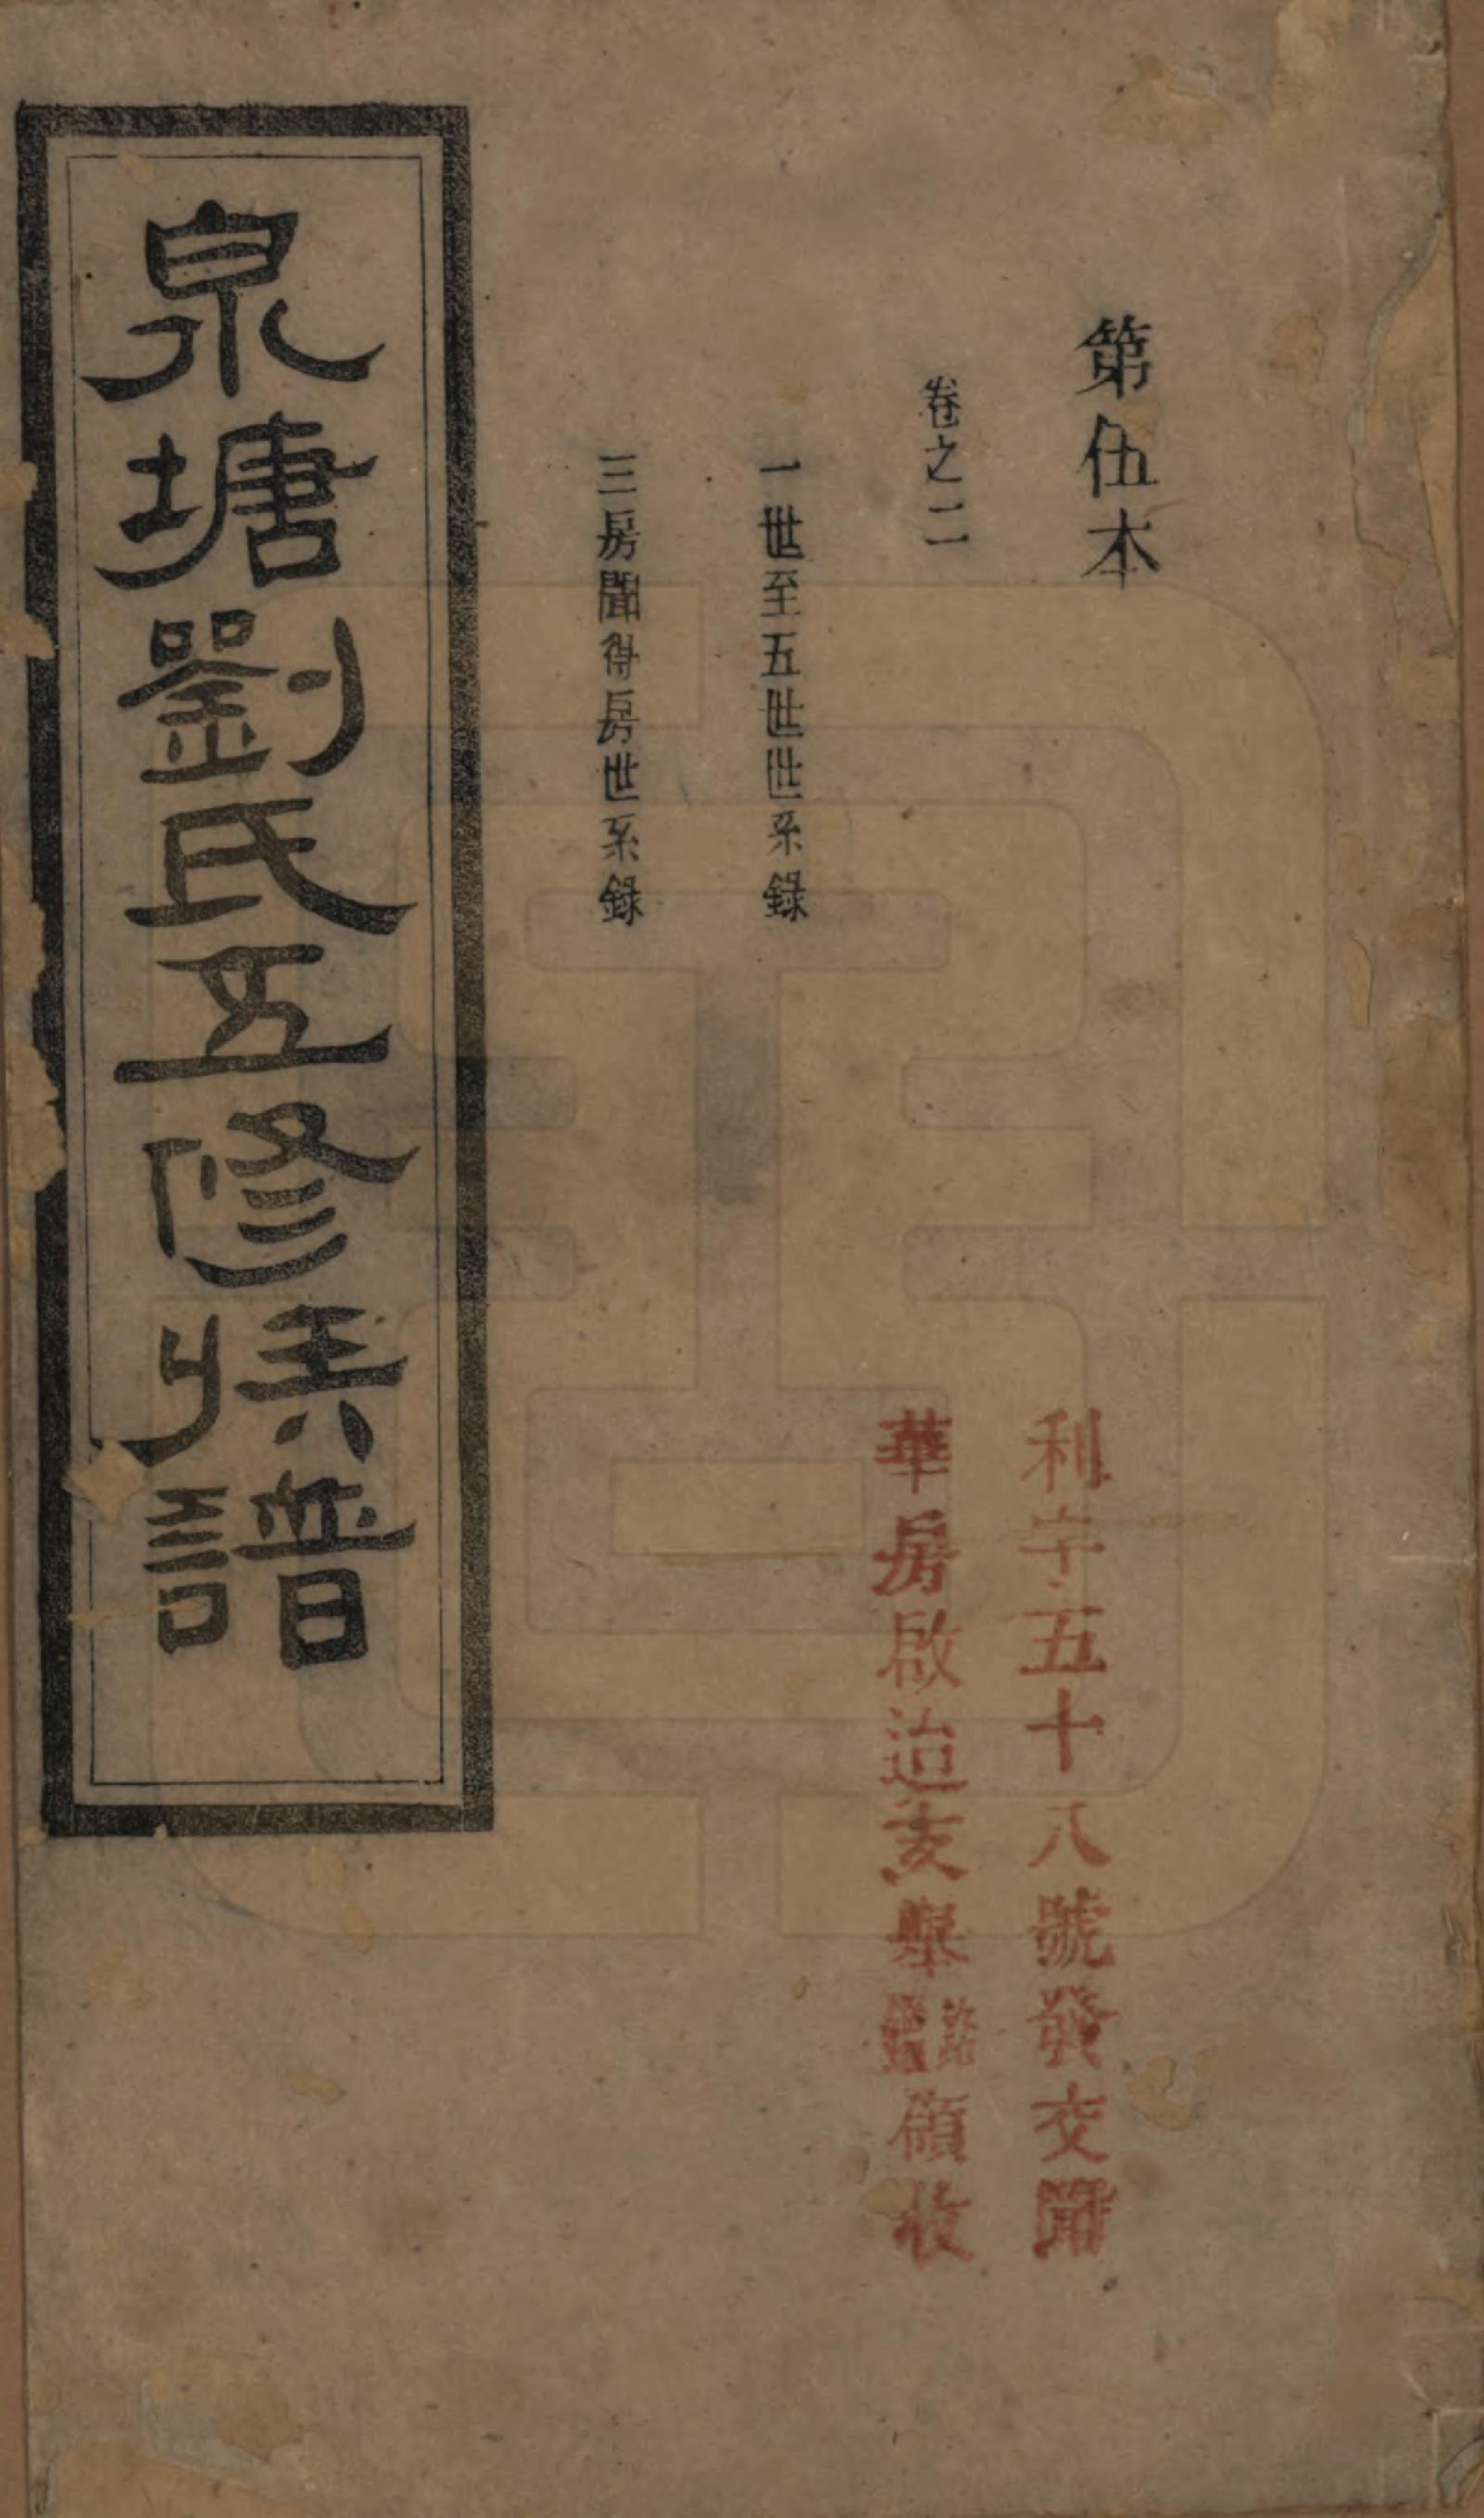 第伍本
卷之二
一世至五世世系錄
三房聞得房世系錄
利字五十八號發交聞
華房啟迨亥舉領收
泉塘劉氏五修族譜